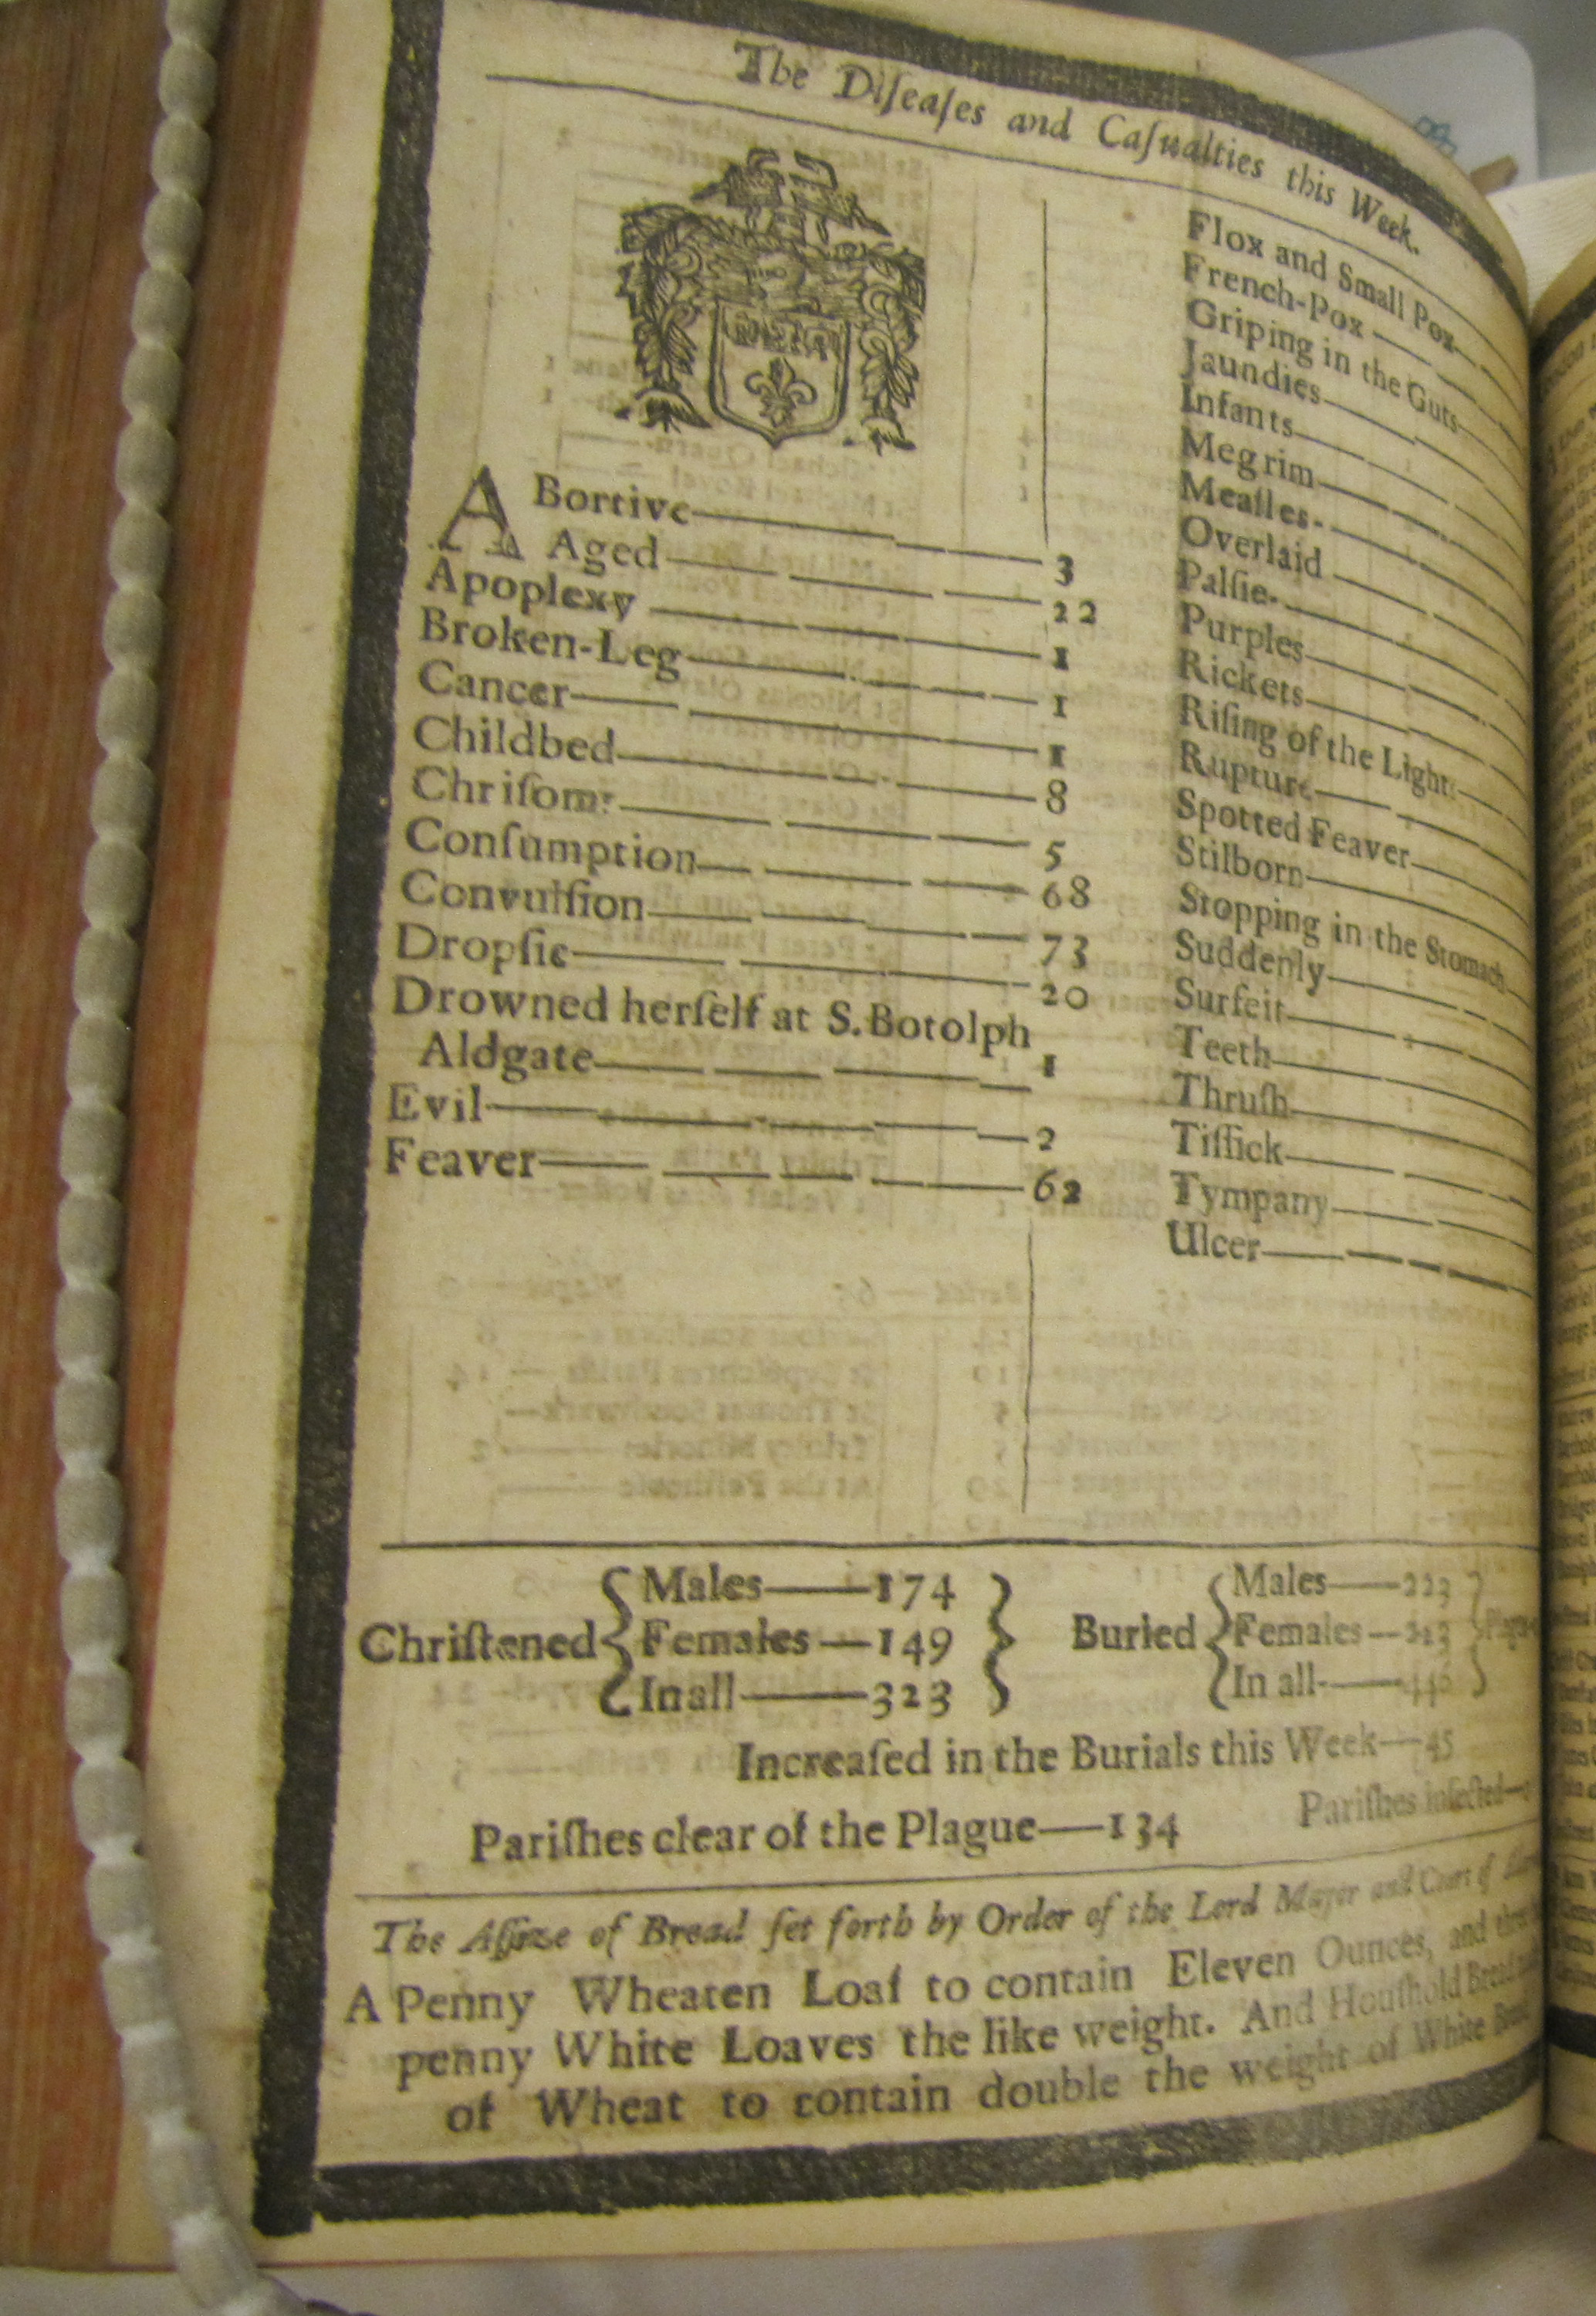 The Diſeaſes and Caſualties this Week.
ABortive 3
Aged 22
Apoplexy 1
Broken-Leg 1
Cancer 1
Childbed 8
Chriſoms 5
Conſumption 68
Convulſion 73
Dropſie 20
Drowned herſelf at S. Botolph
Aldgate 1
Evil 2
Feaver 62
Flox and Small Pox
French-Pox
Griping in the Guts
Jaundies
Infants
Megrim
Meaſles
Overlaid
Palſie
Purples
Rickets
Riſing of the Lights
Rupture
Spotted Feaver
Stilborn
Stopping in the Stomach
Suddenly
Surfeit
Teeth
Thruſh
Tiſſick
Tympany
Ulcer
Chriſtened { Males—174 Females—149 In all—323 }
Buried { Males—223 Females— In all— }
Increaſed in the Burials this Week—45
Pariſhes clear of the Plague—134 Pariſhes infected—
The Aſſize of Bread ſet forth by Order of the Lord Mayor and Court of
A Penny Wheaten Loaf to contain Eleven Ounces, and
penny White Loaves the like weight. And Houſhold Bread
of Wheat to contain double the weight of White